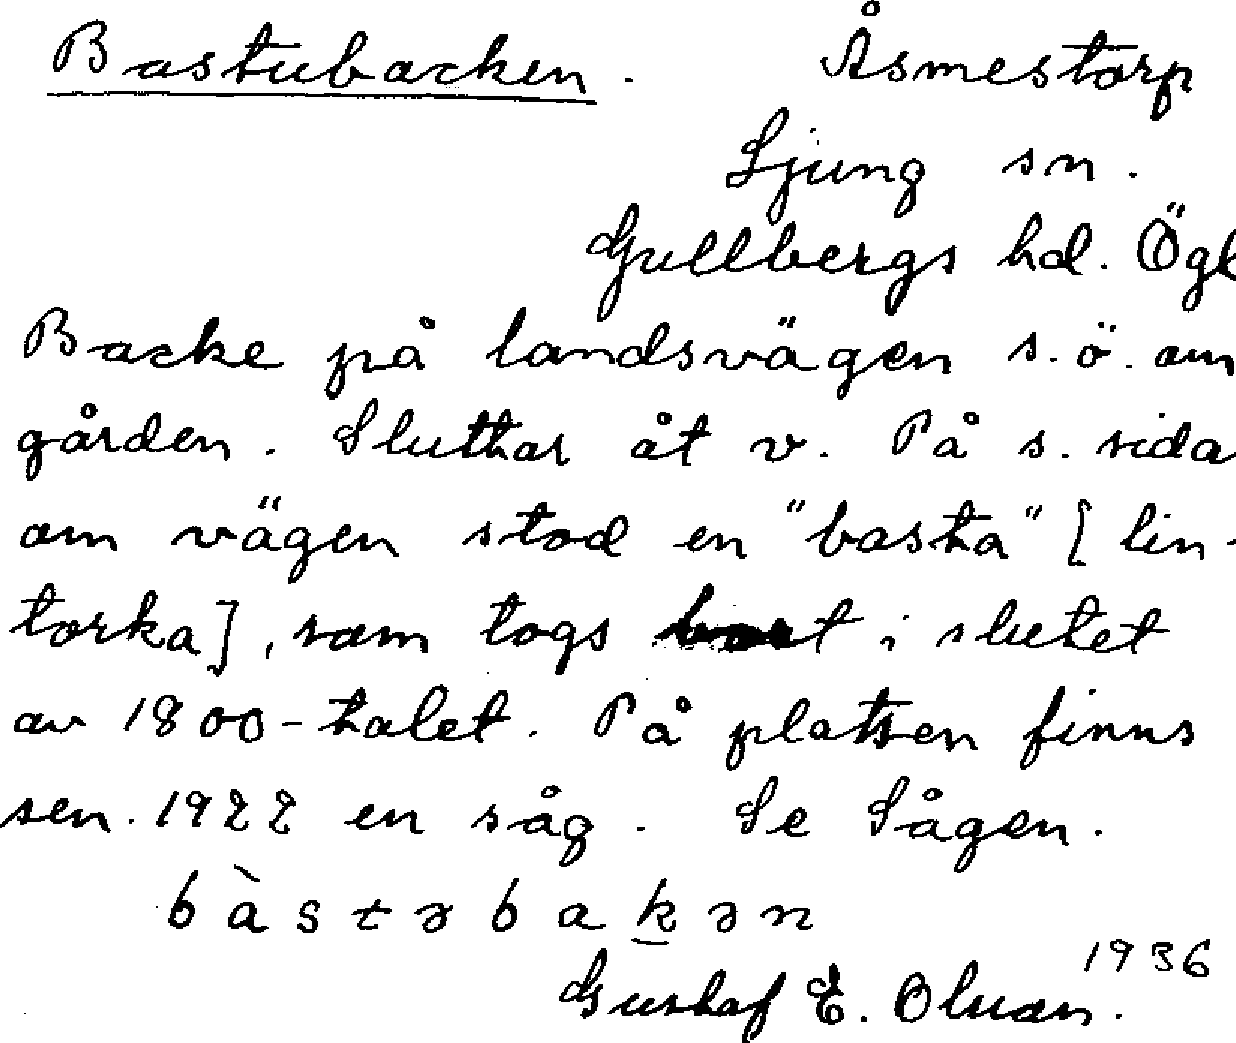 Bastubacken. Åsmestorp
Ljung sn.
Gullbergs hd. Ögl
Backe på landsvägen s.ö. om
gården. Sluttar åt v. På s. sida
om vägen stod en "basta" [lin-
torka], som togs bort i slutet
av 1800-talet. På platsen finns
sen. 1922 en såg. Se Sågen.
bàstəbakən
1936
Gustaf E. Olson.